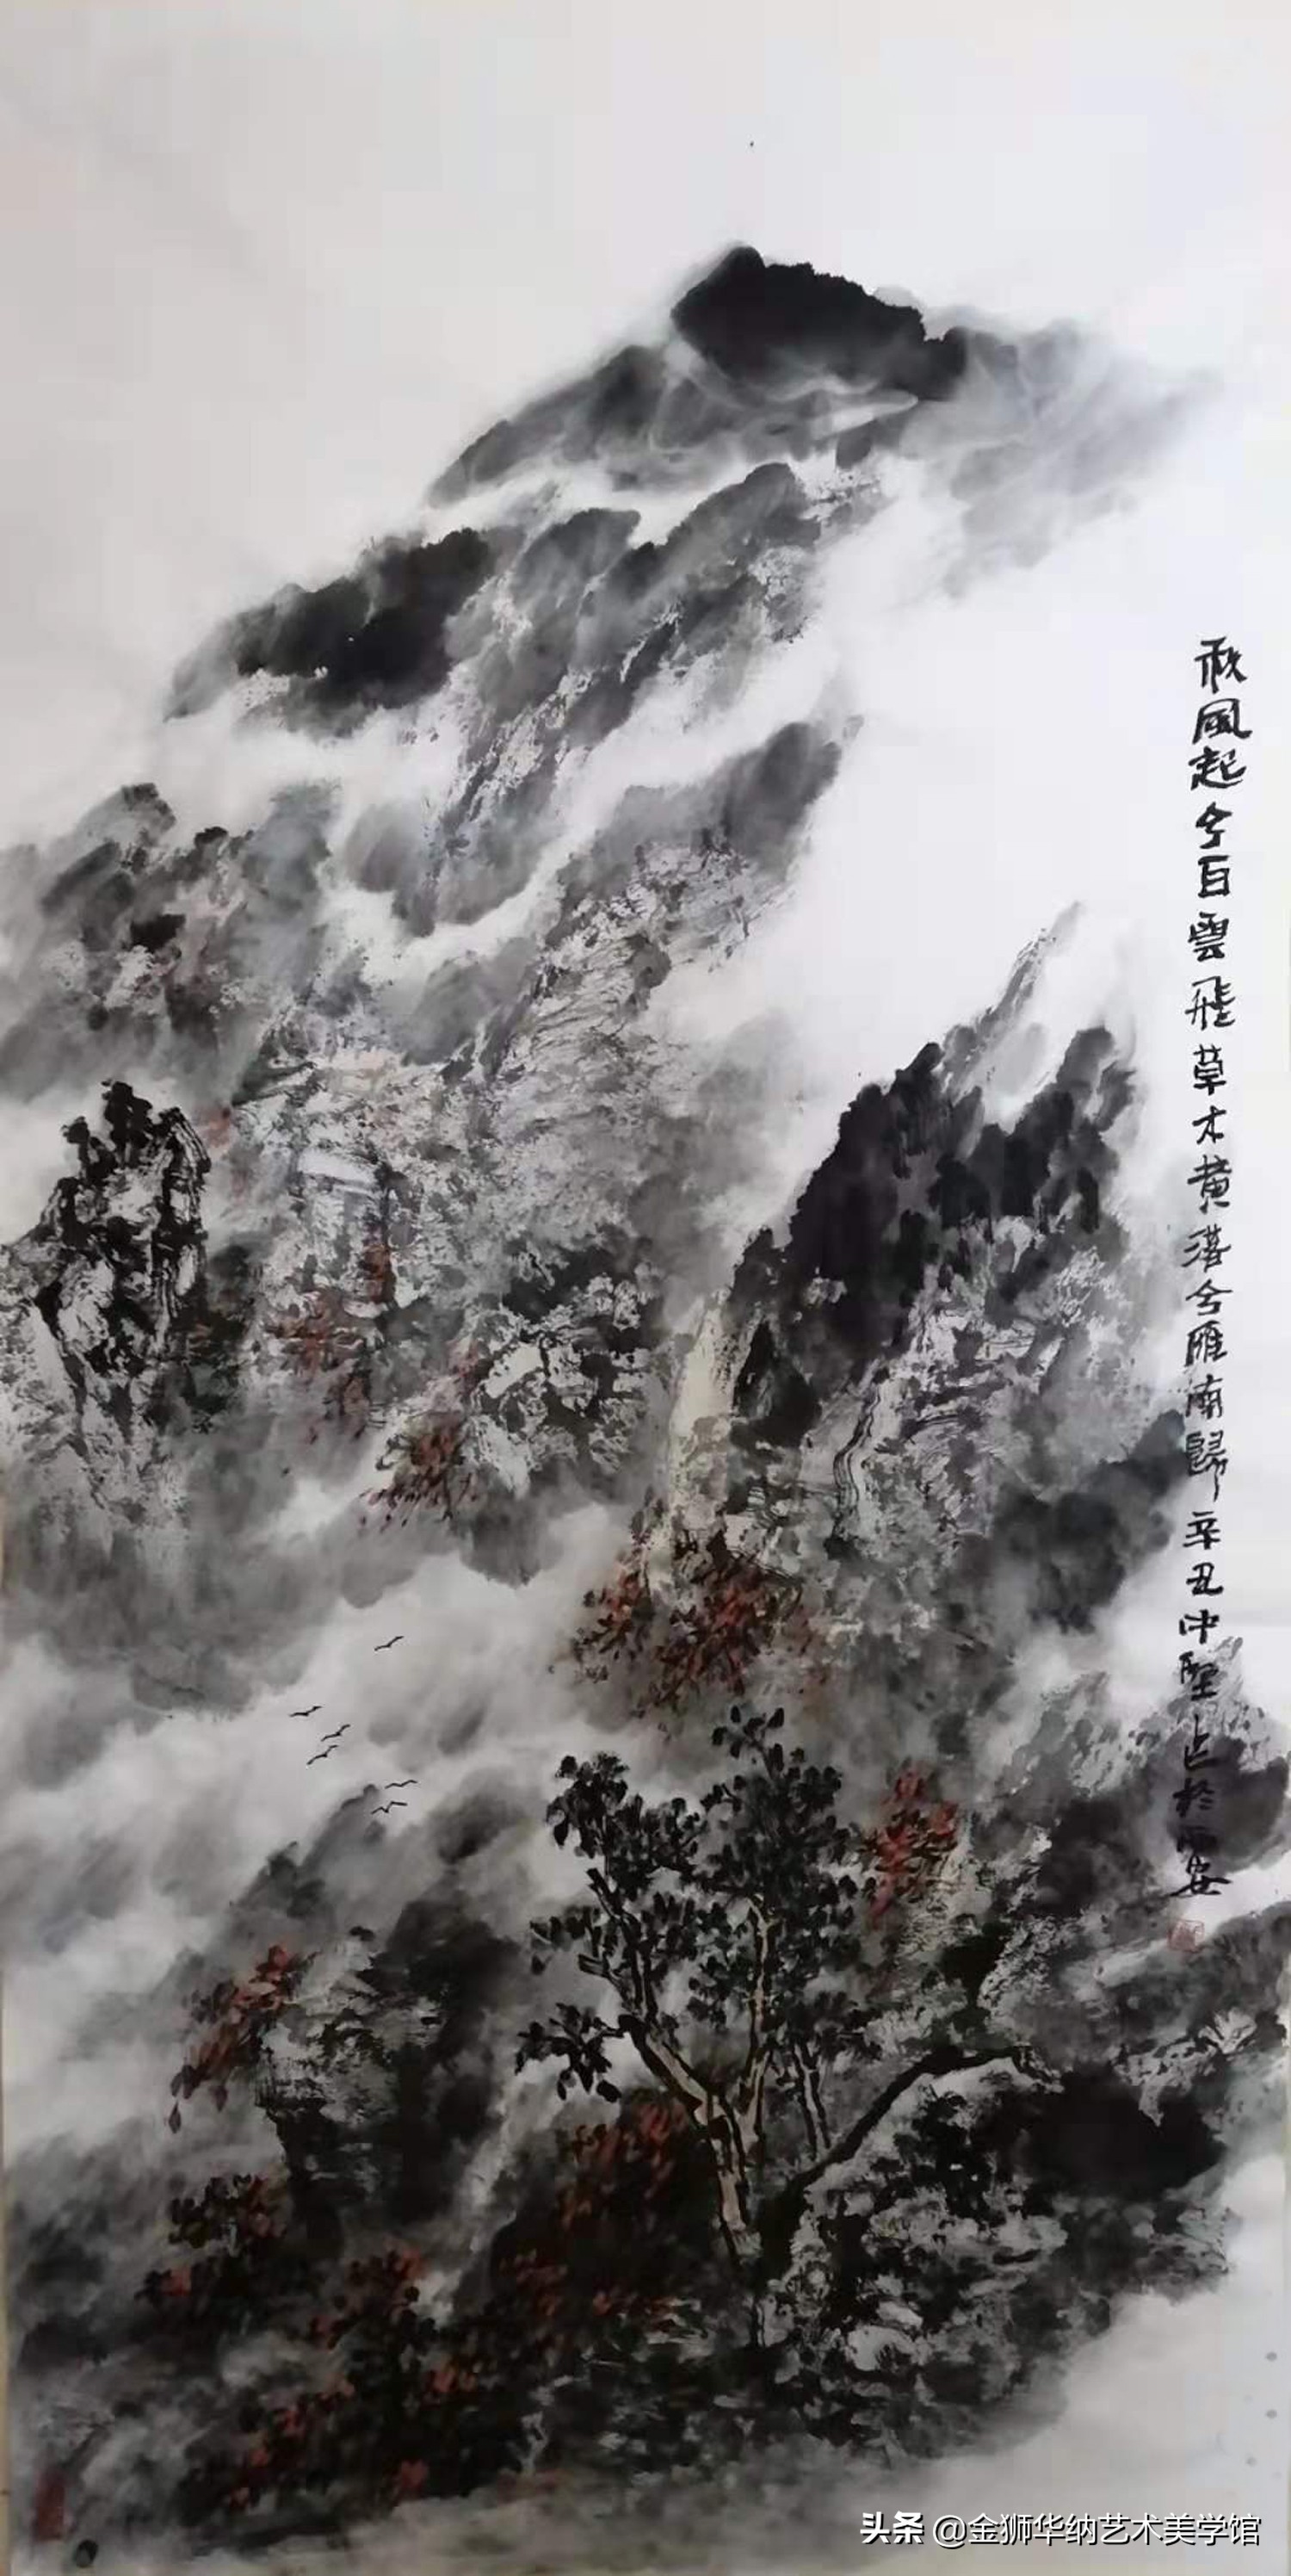 秋風起兮白雲飛草木黄落兮雁南歸辛丑仲堅作於西安
头条 @金狮华纳艺术美学馆